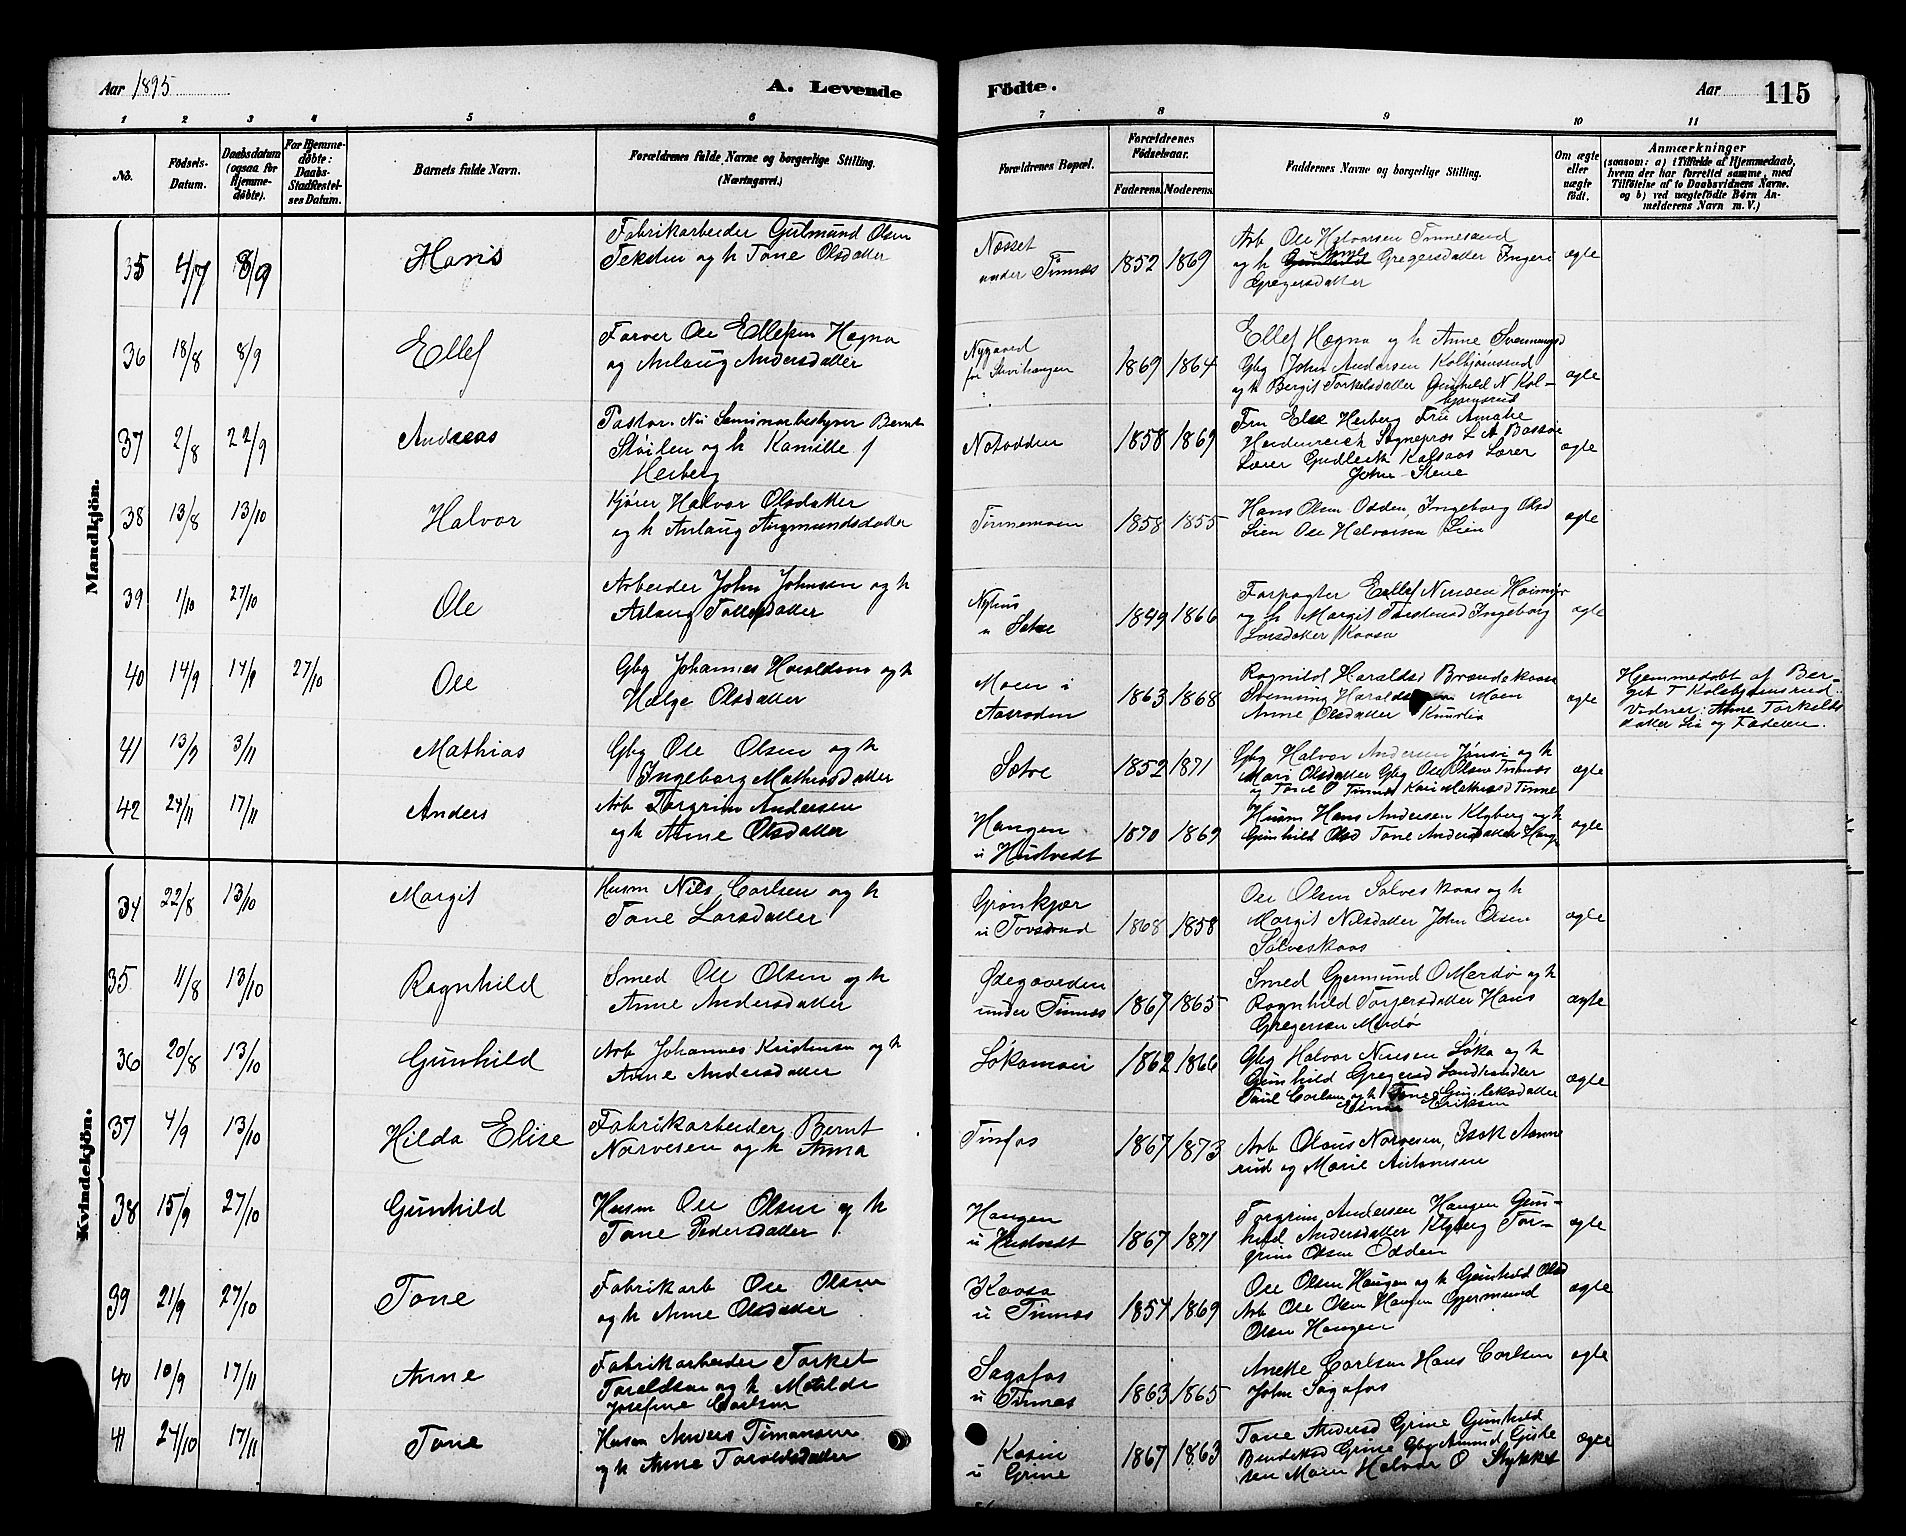 Aar 1895
A. Levende
Födte.
Aar
115
1 2 3 4 5 6 7 8 9 10 11
No.
Födsels-
Datum.
Daabsdatum
(ogsaa for
Hjemme-
döbte).
For Hjemme-
döbte:
Daabs-
Stadfæstel-
ses Datum.
Barnets fulde Navn.
Forældrenes fulde Navne og borgerlige Stilling.
(Næringsvei.)
Forældrenes Bopæl.
Forældrenes
Födselsaar.
Faderens.
Moderens.
Faddernes Navne og borgerlige Stilling.
Om ægte
eller
uægte
födt.
Anmærkninger
(saasom: a) i Tilfælde af Hjemmedaab,
hvem der har forrettet samme, med
Tilföielse af to Daabsvidners Navne,
og b) ved uægtefödte Børn An-
melderens Navn m. V.)
Mandkjön.
35 4/7 8/9 Hans
Fabrikarbeider Gutmund Olsen
og h Tone Olsdatter
Næsset
under Tinnæs
1852 1869
Arb Ole Halvorsen Tinnesand
og h Anne Gregersdatter Ingeri
Gregersdatter
ægte
36 18/8 8/9 Ellef
Farver Ole Ellefsen Hogna
og Aslaug Andersdatter
Nygaard
1869 1864
Ellef Hogna og h Anne Svenningsd
Gbg John Andersen Kolbjørnsrud
og h Bergit Torkelsdatter Gunhild N Kol-
bjørnsrud
ægte
37 2/8 22/9 Andreas
Pastor. Nu Seminarbestyrer Bernt
Støilen og h Kamilla f
Herberg
Notodden
1858 1869
Fru Else Herberg Fru Amalie
Heidenreich Sognepræs L A Bassøe
Lærer Gudleik Kalsaas Lærer
John Stene
ægte
38 13/8 13/10 Halvor
Kjører Halvor Olsdatter
og h Aslaug Augmundsdatter
Tinnemoen
1858 1855
Hans Olsen Odden, Ingeborg Olsd
Lien Ole Halvorsen Lien
ægte
39 1/10 27/10 Ole
Arbeider John Johnsen og h
Aslaug Tollefsdatter
Nyhus
u Sætre
1849 1866
Forpagter Ellef Nilsen
og h Margit Torstensd Ingeborg
Larsdatter Kaasa
ægte
40 14/9 14/9 27/10 Ole
Gbg Johannes Haraldsen og h
Helge Olsdatter
Moen i
1863 1868
Ragnild Haraldsd Brendekaasa
Svenning Haralds Moen
Anne Olsdatter Knurlia
ægte
Hjemmedøbt af Ber-
get T Kolbjørnsrud.
Vidner: Anne Torkelds
datter Lia og Faderen.
41 13/9 3/11 Mathias
Gbg Ole Olsen og h
Ingeborg Mathiasdatter
Sætre
1852 1871
Gbg Halvor Andersen og h
Mari Olsdatter Gbg Ole Olsen Tinnæs
og Tone O Tinnæs Kari Mathiasd Tinne
ægte
42 24/11 17/11 Anders
Arb Torgrim Andersen
og h Anne Olsdatter
Haugen
u Hustvedt
1870 1869
Husm Hans Andersen Klyberg og h
Gunhild Olsd Tone Andersdatter Haug
ægte
Kvindekjön.
34 22/8 13/10 Margit
Husm Nils Carlsen og h
Tone Larsdatter
Grønkjær
u Tovsrud
1868 1858
Ole Olsen Sølveskaas og h
Margit Nilsdatter John Olsen
Sølveskaas
ægte
35 11/8 13/10 Ragnhild
Smed Ole Olsen og h
Anne Andersdatter
Ødegaarden
under Tinnæs
1867 1865
Smed Gjermund O Merdø og h
Ragnhild Torgersdatter Hans
Gregersen Merdø
ægte
36 20/8 13/10 Gunhild
Arb Johannes Kristensen og h
Anne Andersdatter
Løkamoen
1862 1866
Gbg Halvor Nilsen Løka og h
Gunhild Gregersd Landhandler
Paul Carlsen og h Tone Gunleksdatter
Einar Eriksen
ægte
37 4/9 13/10 Hilda Elise
Fabrikarbeider Bernt
Narvesen og h Anna
Tinfos
1867 1873
Arb Olaus Narvesen, Isak Aanne
rud og Marie Antonsen
38 15/9 27/10 Gunhild
Husm Ole Olsen og h
Tone Pedersdatter
Haugen
u Hustvedt
1867 1871
Torgrim Andersen Haugen Gun-
hild Andersdatter Klyberg Tor-
grim Olsen Odden
ægte
39 21/9 27/10 Tone
Fabrikarb Ole Olsen
og h Anne Olsdatter
Kaasa
u Tinnæs
1857 1869
Ole Olsen Haugen og h Gunhild Olsd
Arb Ole Olsen Haugen Gjermund
Olsen Haugen
ægte
40 10/9 17/11 Anne
Fabrikarbeider Torkel
Toraldsen og h Matilde
Josefine Carlsen
Sagafos
u Tinnes
1863 1865
Anette Carlsen Hans Carlsen
John Sagafos
ægte
41 24/10 17/11 Tone
Husm Anders Timansen
og h Anne Toroldsdatter
Kasin
u Grine
1867 1863
Tone Andersd Grine Gunhild
Bendiksd Grine Gbg Amund Gisle
sen Moen Halvor O Stykket
ægte